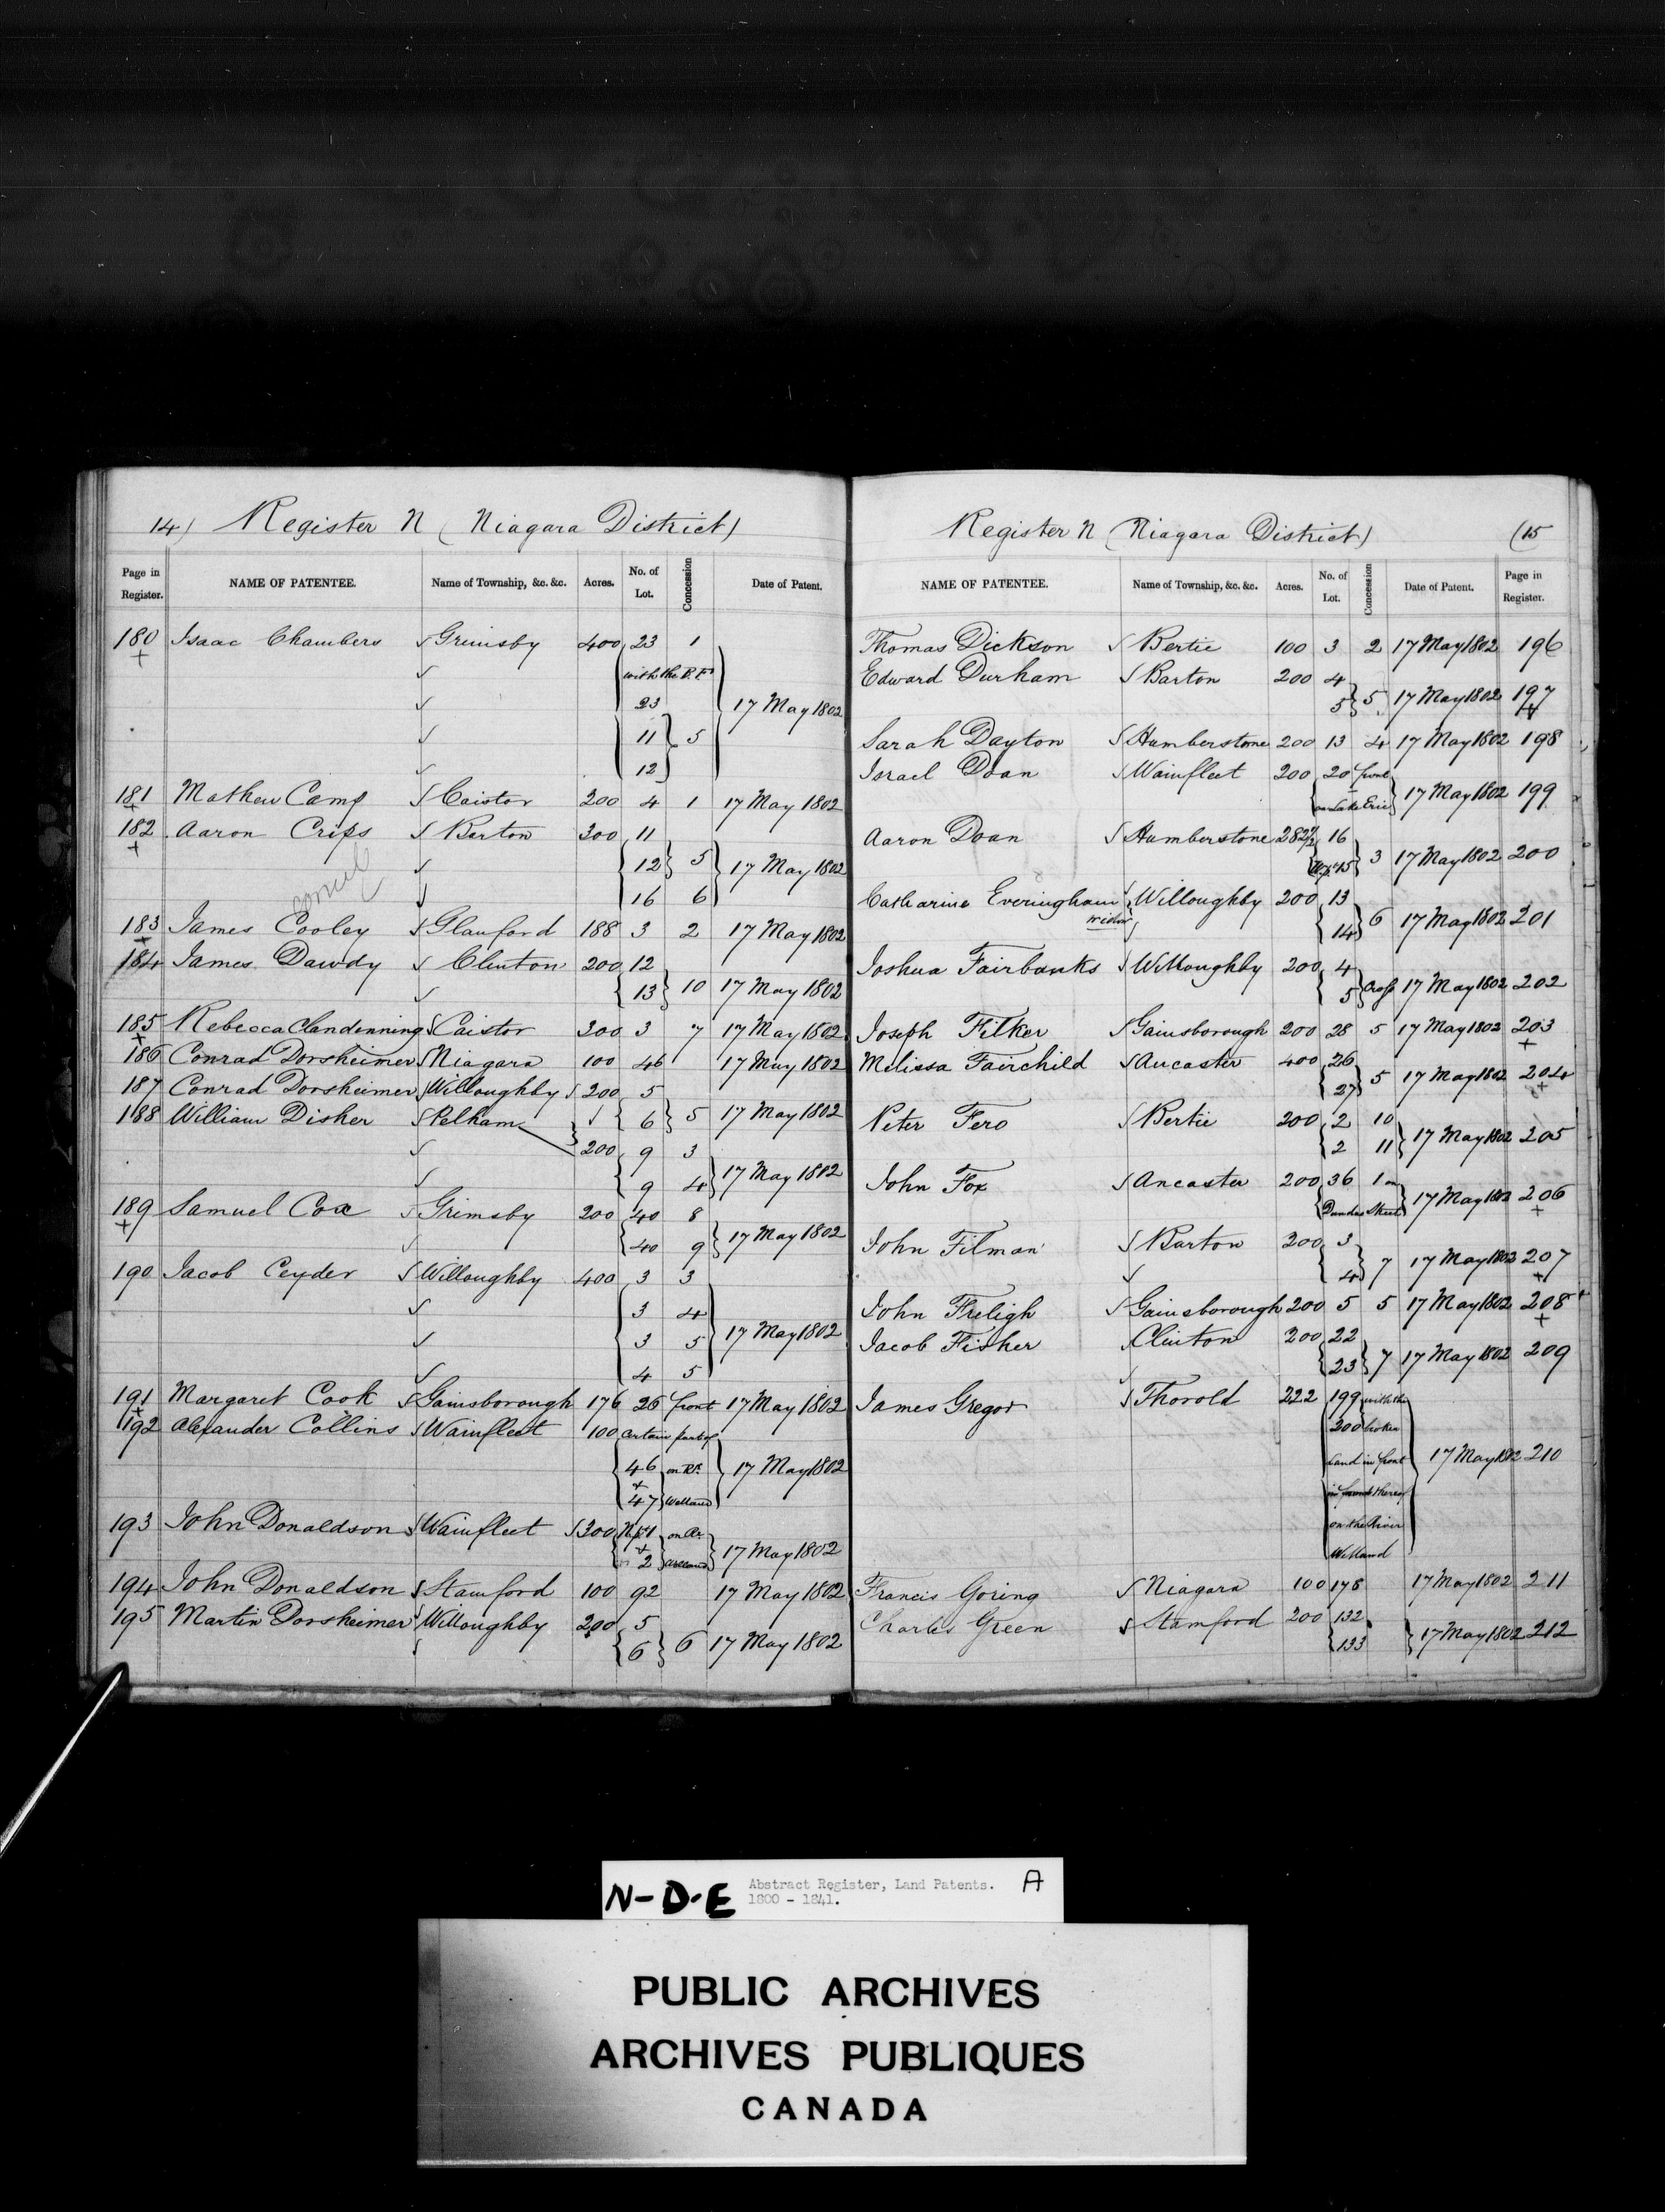 14) Register N (Niagara District)
Page in Register. NAME OF PATENTEE. Name of Township, &c. &c. Acres. No. of Lot. Concession Date of Patent.
180 Isaac Chambers Grimsby 400 23 1
with the B.F.
23 17 May 1802
11 5
12
181 Mathew Camp Caistor 200 4 1 17 May 1802
182 Aaron Crips Barton 300 11
12 5 17 May 1802
16 6
183 James Cooley Glanford 188 3 2 17 May 1802
184 James Dawdy Clinton 200 12
13 10 17 May 1802
185 Rebecca Clandenning Caistor 200 3 7 17 May 1802
186 Conrad Dorsheimer Niagara 100 46 17 May 1802
187 Conrad Dorsheimer Willoughby 200 5
188 William Disher Pelham 6 5 17 May 1802
200 9 3
9 4 17 May 1802
189 Samuel Cox Grimsby 200 40 8
40 9 17 May 1802
190 Jacob Ceyder Willoughby 400 3 3
3 4
3 5 17 May 1802
4 5
191 Margaret Cook Gainsborough 176 26 front 17 May 1802
192 Alexander Collins Wainfleet 100 certain part of
46 on Rr. 17 May 1802
+
47 Welland
193 John Donaldson Wainfleet 300 N pt 1 on Rr.
+ 2 Welland 17 May 1802
194 John Donaldson Stamford 100 92 17 May 1802
195 Martin Dorsheimer Willoughby 200 5
6 6 17 May 1802
Register N (Niagara District) (15
NAME OF PATENTEE. Name of Township, &c. &c. Acres. No. of Lot. Concession Date of Patent. Page in Register.
Thomas Dickson Bertie 100 3 2 17 May 1802 196
Edward Durham Barton 200 4
5 5 17 May 1802 197
Sarah Dayton Humberstone 200 13 4 17 May 1802 198
Israel Doan Wainfleet 200 20 front
on Lake Erie 17 May 1802 199
Aaron Doan Humberstone 282 1/2 16
15 3 17 May 1802 200
Catharine Everingham Willoughby 200 13
widow 14 6 17 May 1802 201
Joshua Fairbanks Willoughby 200 4
5 Cross 17 May 1802 202
Joseph Filker Gainsborough 200 28 5 17 May 1802 203
Melissa Fairchild Ancaster 400 26
27 5 17 May 1802 204
Peter Fero Bertie 200 2 10
2 11 17 May 1802 205
John Fox Ancaster 200 36 1 on
Dundas Street 17 May 1802 206
John Filman Barton 200 3
4 7 17 May 1802 207
John Freligh Gainsborough 200 5 5 17 May 1802 208
Jacob Fisher Clinton 200 22
23 7 17 May 1802 209
James Gregor Thorold 222 199 with the
200 broken
Land in front 17 May 1802 210
in front thereof
on the River
Welland
Francis Goring Niagara 100 178 17 May 1802 211
Charles Green Stamford 200 132
133 17 May 1802 212
N-D-E Abstract Register, Land Patents. A
1800 - 1841.
PUBLIC ARCHIVES
ARCHIVES PUBLIQUES
CANADA